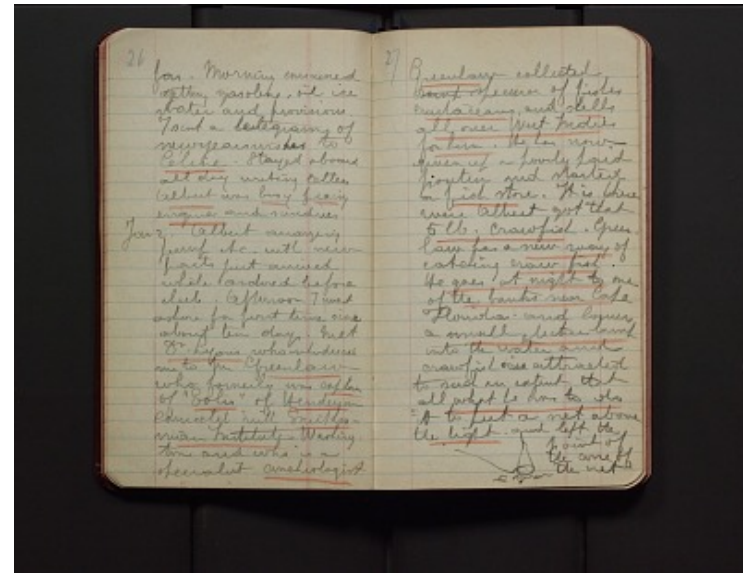 26
for. Morning
getting gasoline, oil ice
water and provisions.
Took a of
to
Stayed aboard
all day writing letters
Albert was busy
engine and sundries
Jan 2. Albert
pump etc. with new
parts just arrived
while ordered before
. Afternoon I went
ashore for first time since
about ten days. Met
Dr. who introduced
me to Mr Greenlaw
who formerly was captain
of "Eolis" of Henderson
connected with Smithso-
nian Institute Washing
tone and who is a
specialist
27
Greenlaw collected
of fishes
crustaceans, and shells
all over West Indies
for him. He has now
given up a poorly paid
and started
a fish store. It is there
were Albert got that
5 lb. crawfish. Green
law has a new way of
catching craw fish.
He goes at night to one
of the banks near Cape
Florida and
a small lamp
into the water and
crawfish attracted
to such an extent, that
all what he has to do
is to put a net above
the light. and left the
point of
the cone of
the net